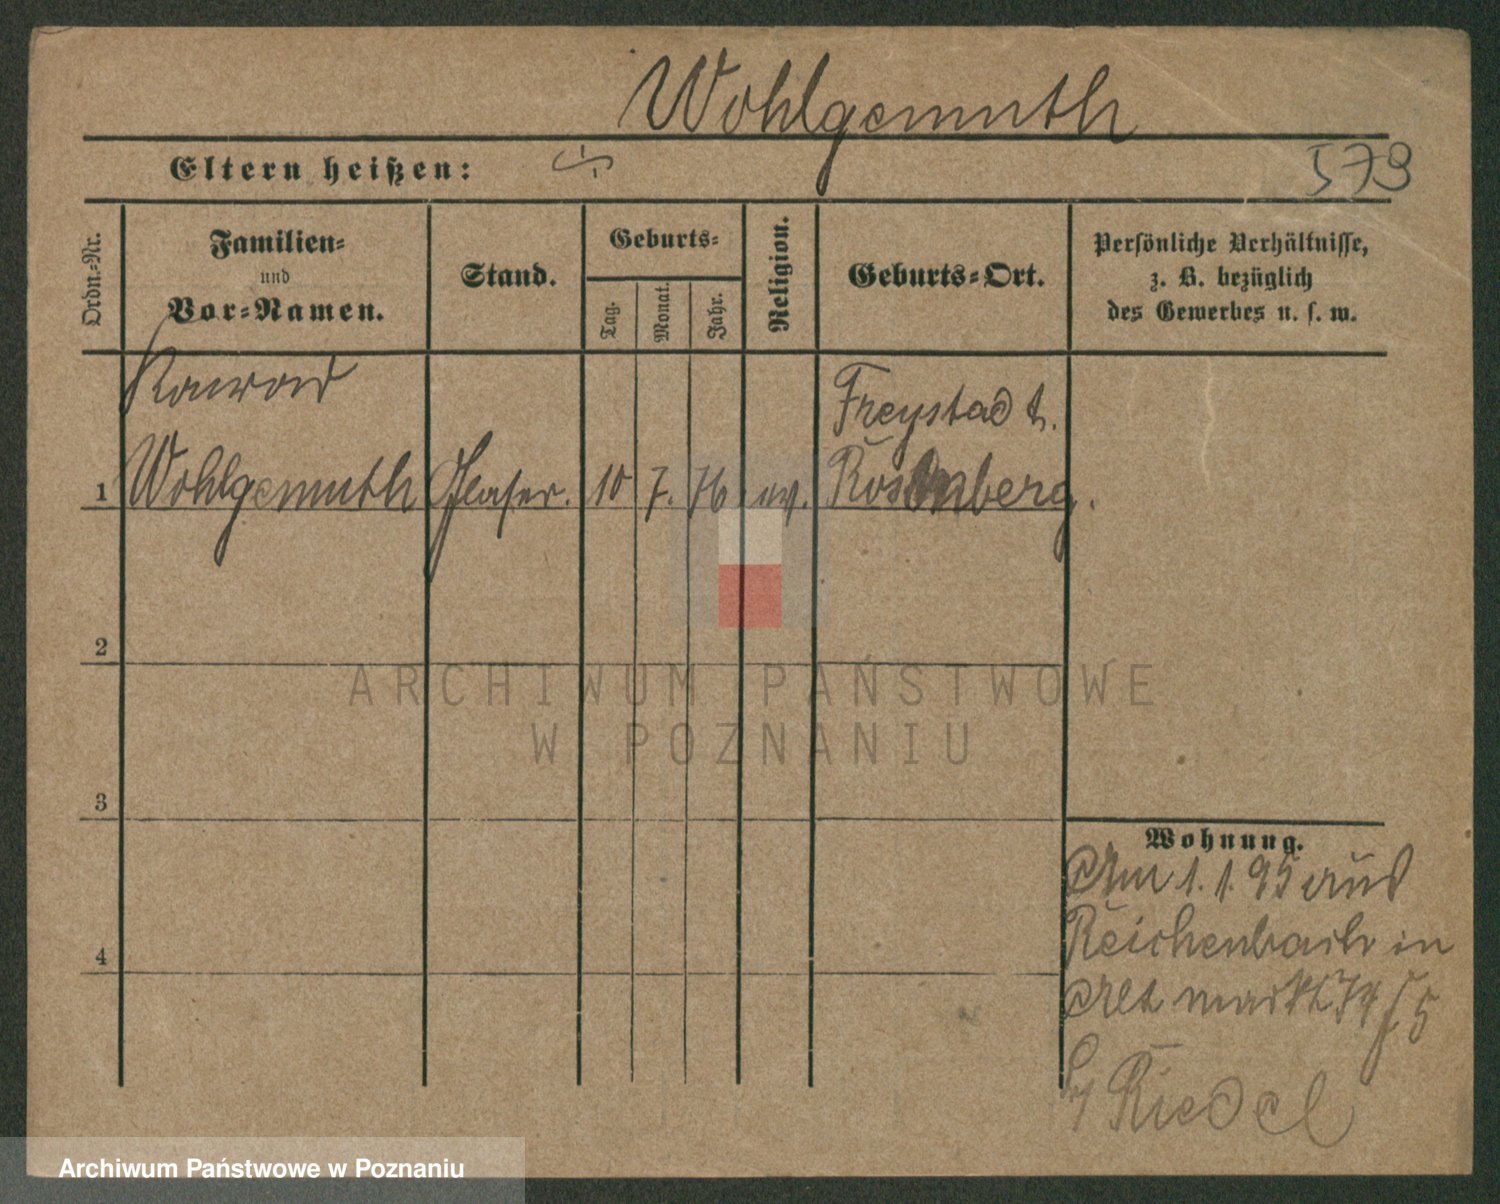 Wohlgemuth
Eltern heißen:
573
Ordn.-Nr.
Familien-
und
Vor-Namen.
Stand.
Geburts-
Tag.
Monat.
Jahr.
Religion.
Geburts-Ort.
Persönliche Verhältnisse,
z. B. bezüglich
des Gewerbes u. s. w.
Konrad
Freystadt.
1 Wohlgemuth Glaser. 10 7. 76 ev. Rosenberg.
2
3
4
Wohnung.
Am 1. 1. 95 aus
Reichenbach in
Alt markt 74
Riedel
ARCHIWUM PAŃSTWOWE
W POZNANIU
Archiwum Państwowe w Poznaniu